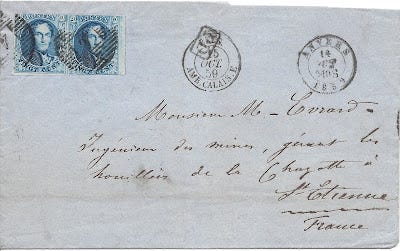 POSTES
VINGT CENTS
VINGT CENTS
15
OCT.
59
AMB. CALAIS. E.
ANVERS
14
1859
Monsieur M - Evrard -
Ingénieur des mines, gérant les
houillères de la Chazotte à
St Etienne
France